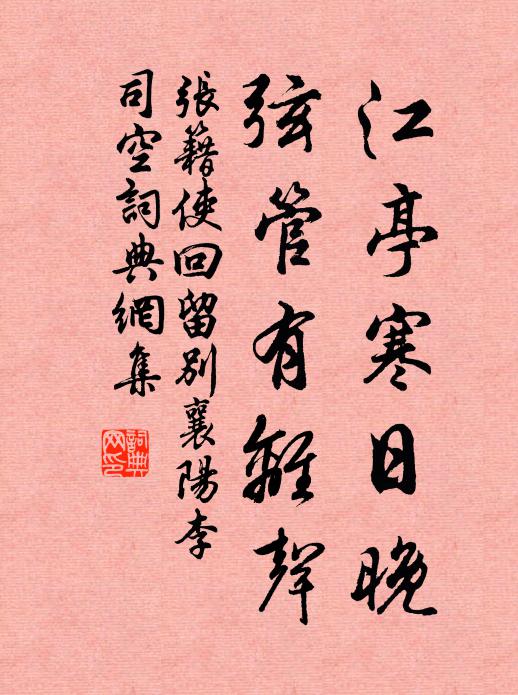 江亭寒日晚
弦管有離聲
張籍使回留別襄陽李
司空詞典網集
詞典
网印